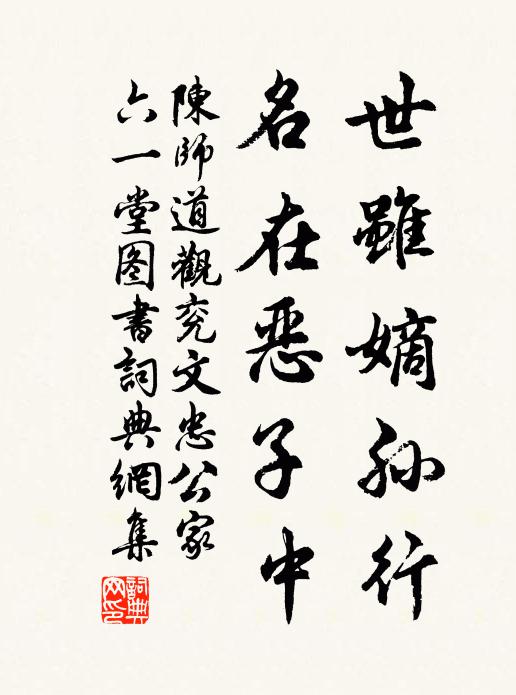 世雖嫡孙行
名在惡子中
陳師道觀兖文忠公家
六一堂图書詞典網集
詞典
网印